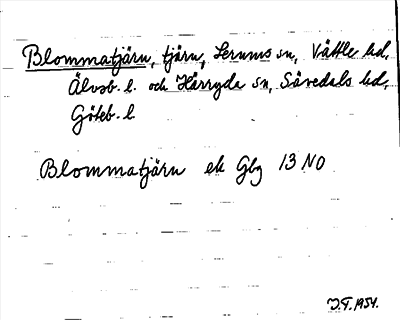 Blommatjärn, tjärn, Lerums sn, Vättle hd,
Älvsb. l. och Härryda sn, Sävedals hd,
Göteb. l.
Blommatjärn ek Gbg 13 NO
J.T. 1954.